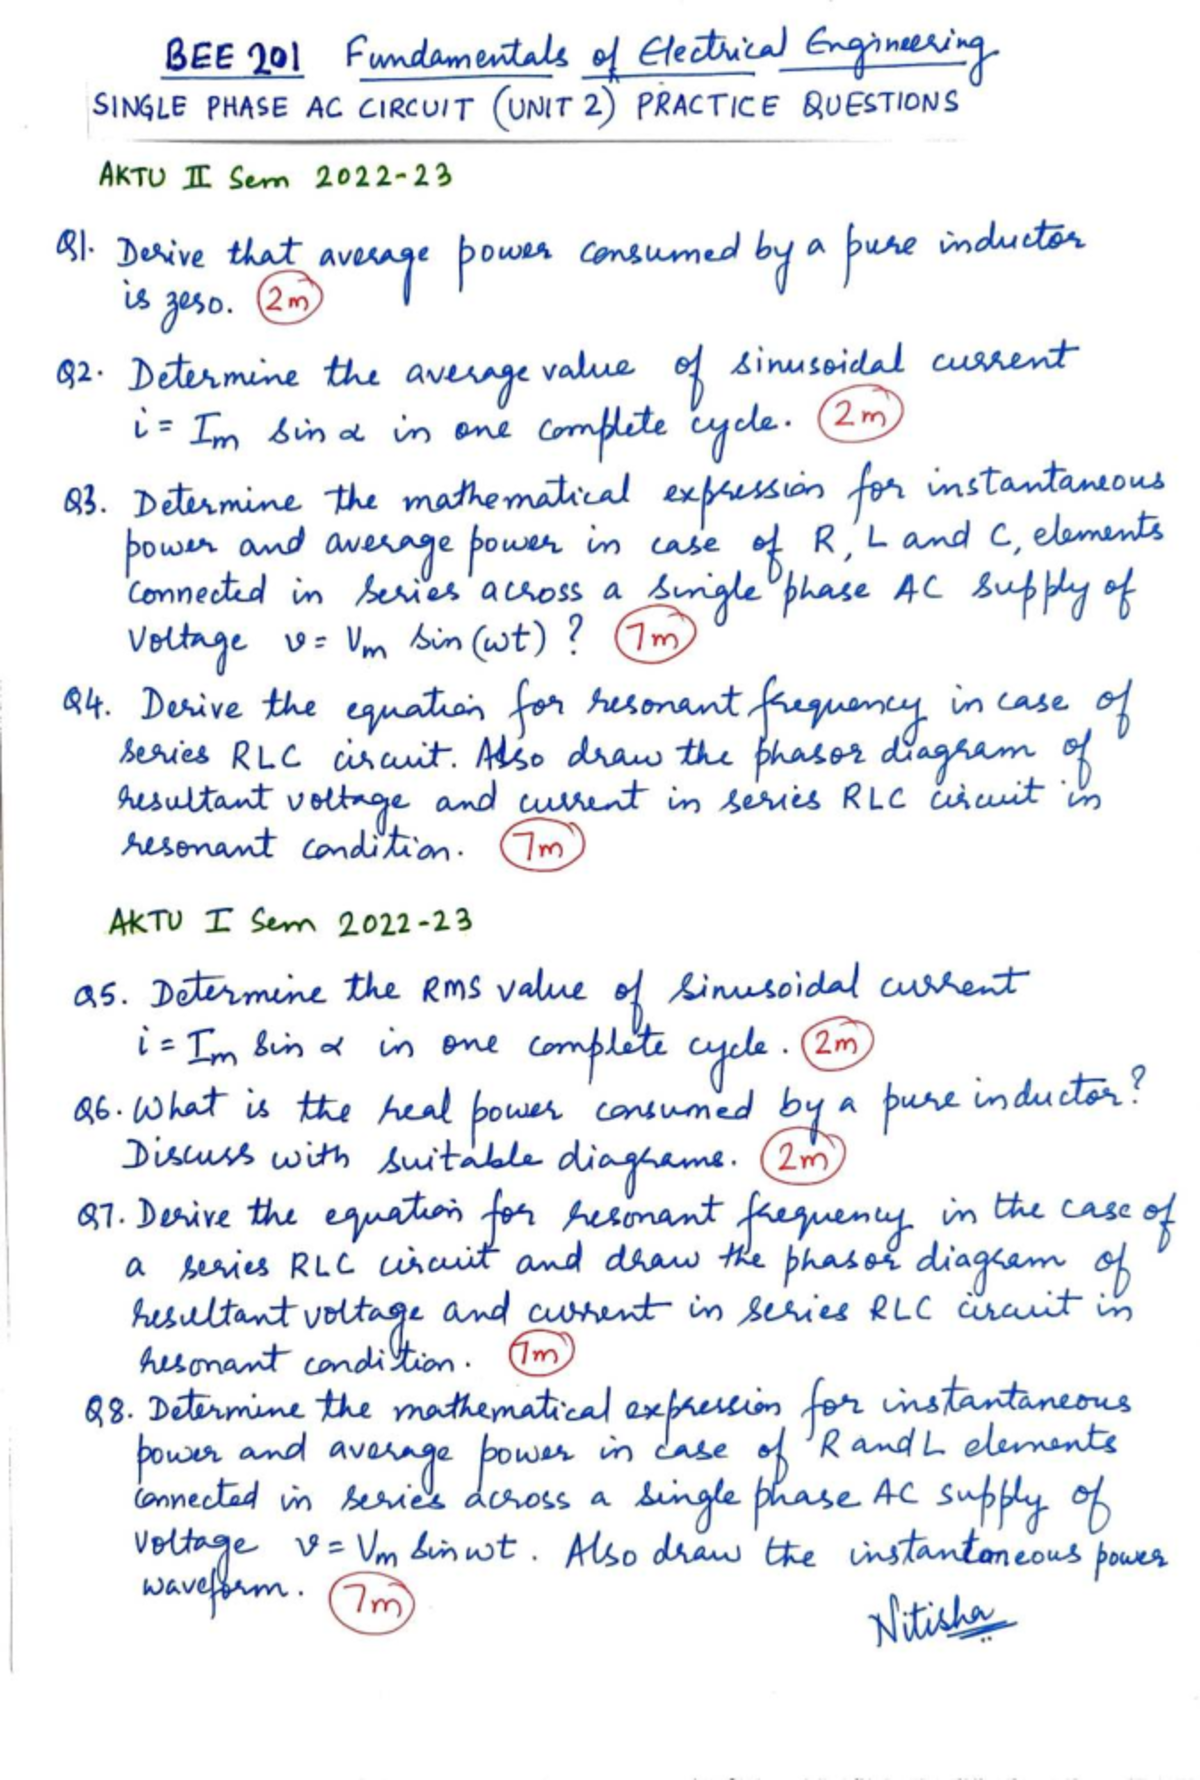 BEE 201 Fundamentals of Electrical Engineering
SINGLE PHASE AC CIRCUIT (UNIT 2) PRACTICE QUESTIONS
AKTU II Sem 2022-23
Q1. Derive that average power consumed by a pure inductor
is zero. 2m
Q2. Determine the average value of sinusoidal current
i = Im sin α in one complete cycle. 2m
Q3. Determine the mathematical expression for instantaneous
power and average power in case of R, L and C, elements
connected in series across a single phase AC supply of
voltage v = Vm sin (ωt) ? 7m
Q4. Derive the equation for resonant frequency in case of
series RLC circuit. Also draw the phasor diagram of
resultant voltage and current in series RLC circuit in
resonant condition. 7m
AKTU I Sem 2022-23
Q5. Determine the RMS value of sinusoidal current
i = Im sin α in one complete cycle. 2m
Q6. What is the real power consumed by a pure inductor?
Discuss with suitable diagrams. 2m
Q7. Derive the equation for resonant frequency in the case of
a series RLC circuit and draw the phasor diagram of
resultant voltage and current in series RLC circuit in
resonant condition. 7m
Q8. Determine the mathematical expression for instantaneous
power and average power in case of R and L elements
connected in series across a single phase AC supply of
voltage v = Vm sin ωt. Also draw the instantaneous power
waveform. 7m
Nitisha